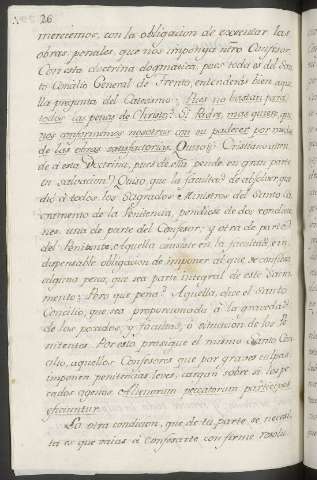 26
merciemos, con la obligacion de executar las
obras penales, que nos imponga ntro Confesor.
Con esta doctrina dogmatica, pues toda es del San-
to Concilio General de Trento, entenderás bien aque-
lla pregunta del Catecismo: Pues no bastan para
todos las penas de Christo? Si Padre, mas quiere, que
nos conformemos nosotros con su padecer por medio
de las obras satisfactorias. Quisoys Christiano aten-
de á esta Doctrina, pues de ella pende en gran parte
tu salvacion! Quiso, que la facultad de absolver, que
dió á todos los Sagrados Ministros del Santo Sa-
cramento de la Penitencia, pendiese de dos condicio-
nes: una de parte del Confesor; y otra de parte
del Penitente. Aquella consiste en la facultad, e in-
dispensable obligacion de imponer al que se confiesa
alguna pena, que sea parte integral de este Sacra-
mento: Pero que pena? Aquella, dice el Santo
Concilio, que sea proporcionada à la gravedad
de los pecados; y facultad, ó situacion de los Pe-
nitentes. Por esto prosigue el mismo Santo Con-
cilio, aquellos Confesores que por graves culpas
imponen penitencias leves, cargan sobre sí los pe-
cados agenos. Alienorum peccatorum participes
efficiuntur.
La otra condicion, que de tu parte se necesi-
ta es que vaias á Confesarte con firme resolu-